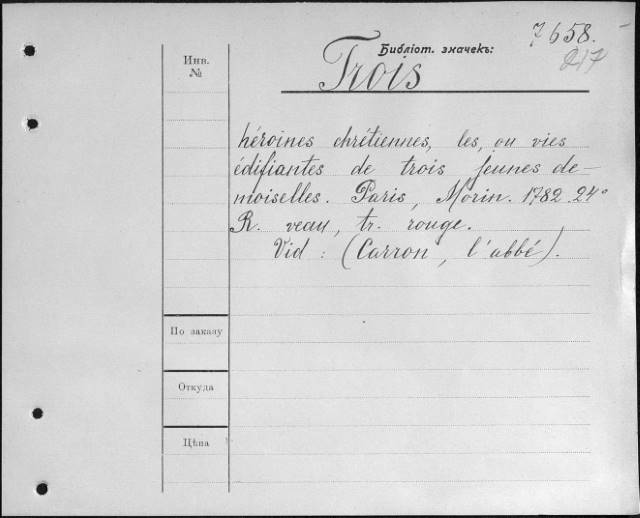 7658.
217
Библіот. значекъ:
Trois
Инв.
№
héroines chrétiennes, les, ou vies
édifiantes de trois jeunes de-
moiselles. Paris, Morin. 1782. 24°
R. veau, tr. rouge.
Vid : (Carron, l'abbé).
По заказу
Откуда
Цѣна